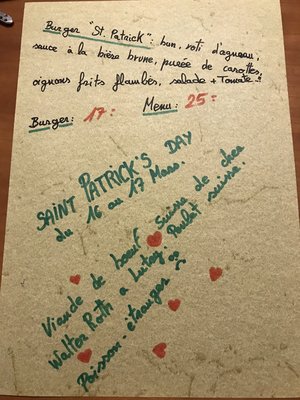 Burger "St. Patrick": bun, roti d'agneau,
sauce à la bière brune, purée de carottes,
oignons frits flambés, salade + Tomate
Burger: 17.- Menu: 25.-
SAINT PATRICK'S DAY
du 16 au 17 Mars.
Viande de bœuf Suisse de chez
Walter Roth a Lutry. Poulet suisse.
Poisson: étranger